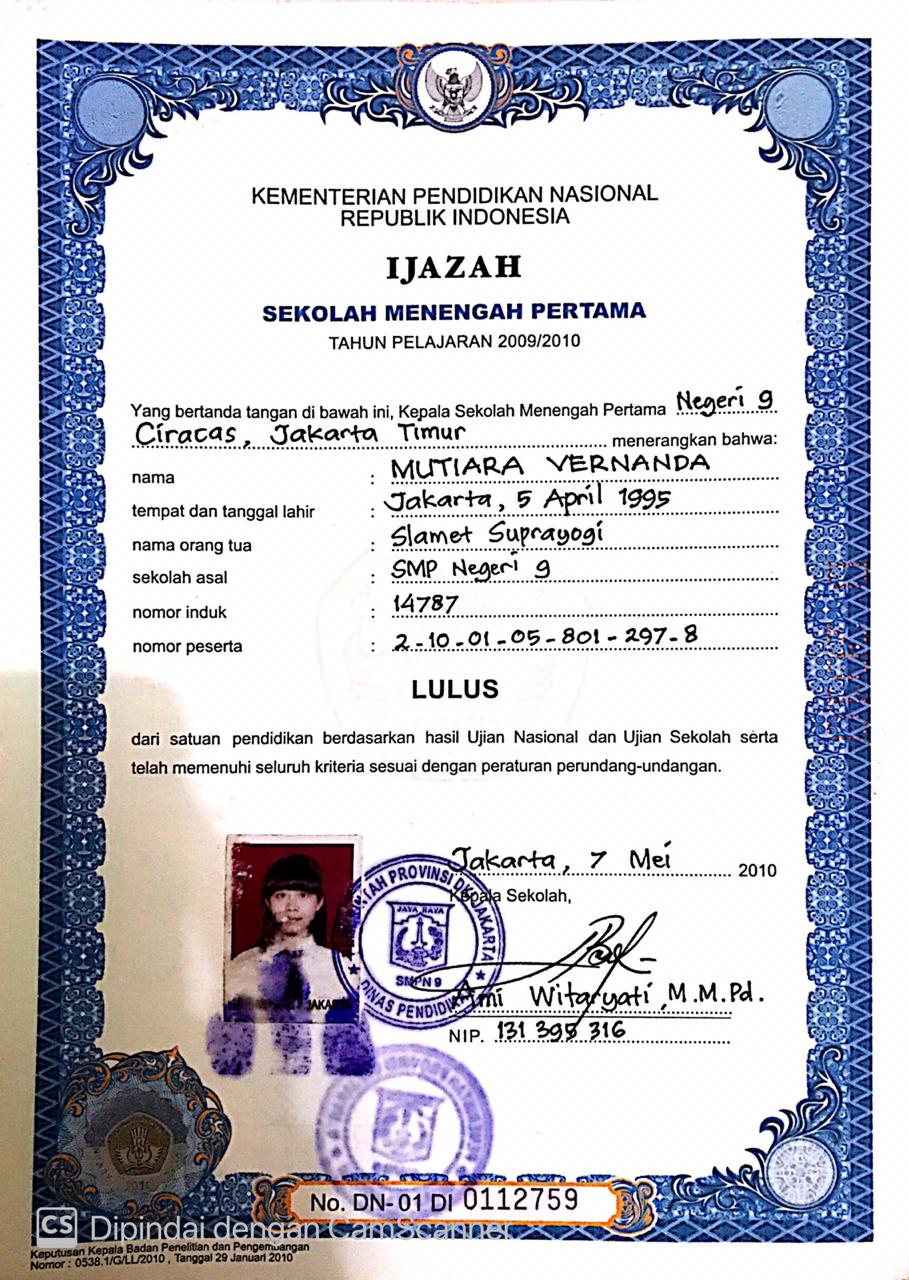 KEMENTERIAN PENDIDIKAN NASIONAL
REPUBLIK INDONESIA
IJAZAH
SEKOLAH MENENGAH PERTAMA
TAHUN PELAJARAN 2009/2010
Yang bertanda tangan di bawah ini, Kepala Sekolah Menengah Pertama Negeri 9
Ciracas, Jakarta Timur menerangkan bahwa:
nama : MUTIARA VERNANDA
tempat dan tanggal lahir : Jakarta, 5 April 1995
nama orang tua : Slamet Suprayogi
sekolah asal : SMP Negeri 9
nomor induk : 14787
nomor peserta : 2-10-01-05-801-297-8
LULUS
dari satuan pendidikan berdasarkan hasil Ujian Nasional dan Ujian Sekolah serta
telah memenuhi seluruh kriteria sesuai dengan peraturan perundang-undangan.
Jakarta, 7 Mei 2010
Kepala Sekolah,
PROVINSI DKI JAKARTA
JAYA RAYA
SMPN 9
DINAS PENDIDIKAN
Witaryati, M.M.Pd.
NIP. 131 395 316
No. DN-01 DI 0112759
CS Dipindai dengan CamScanner
Keputusan Kepala Badan Penelitian dan Pengembangan
Nomor : 0538.1/G/LL/2010 , Tanggal 29 Januari 2010